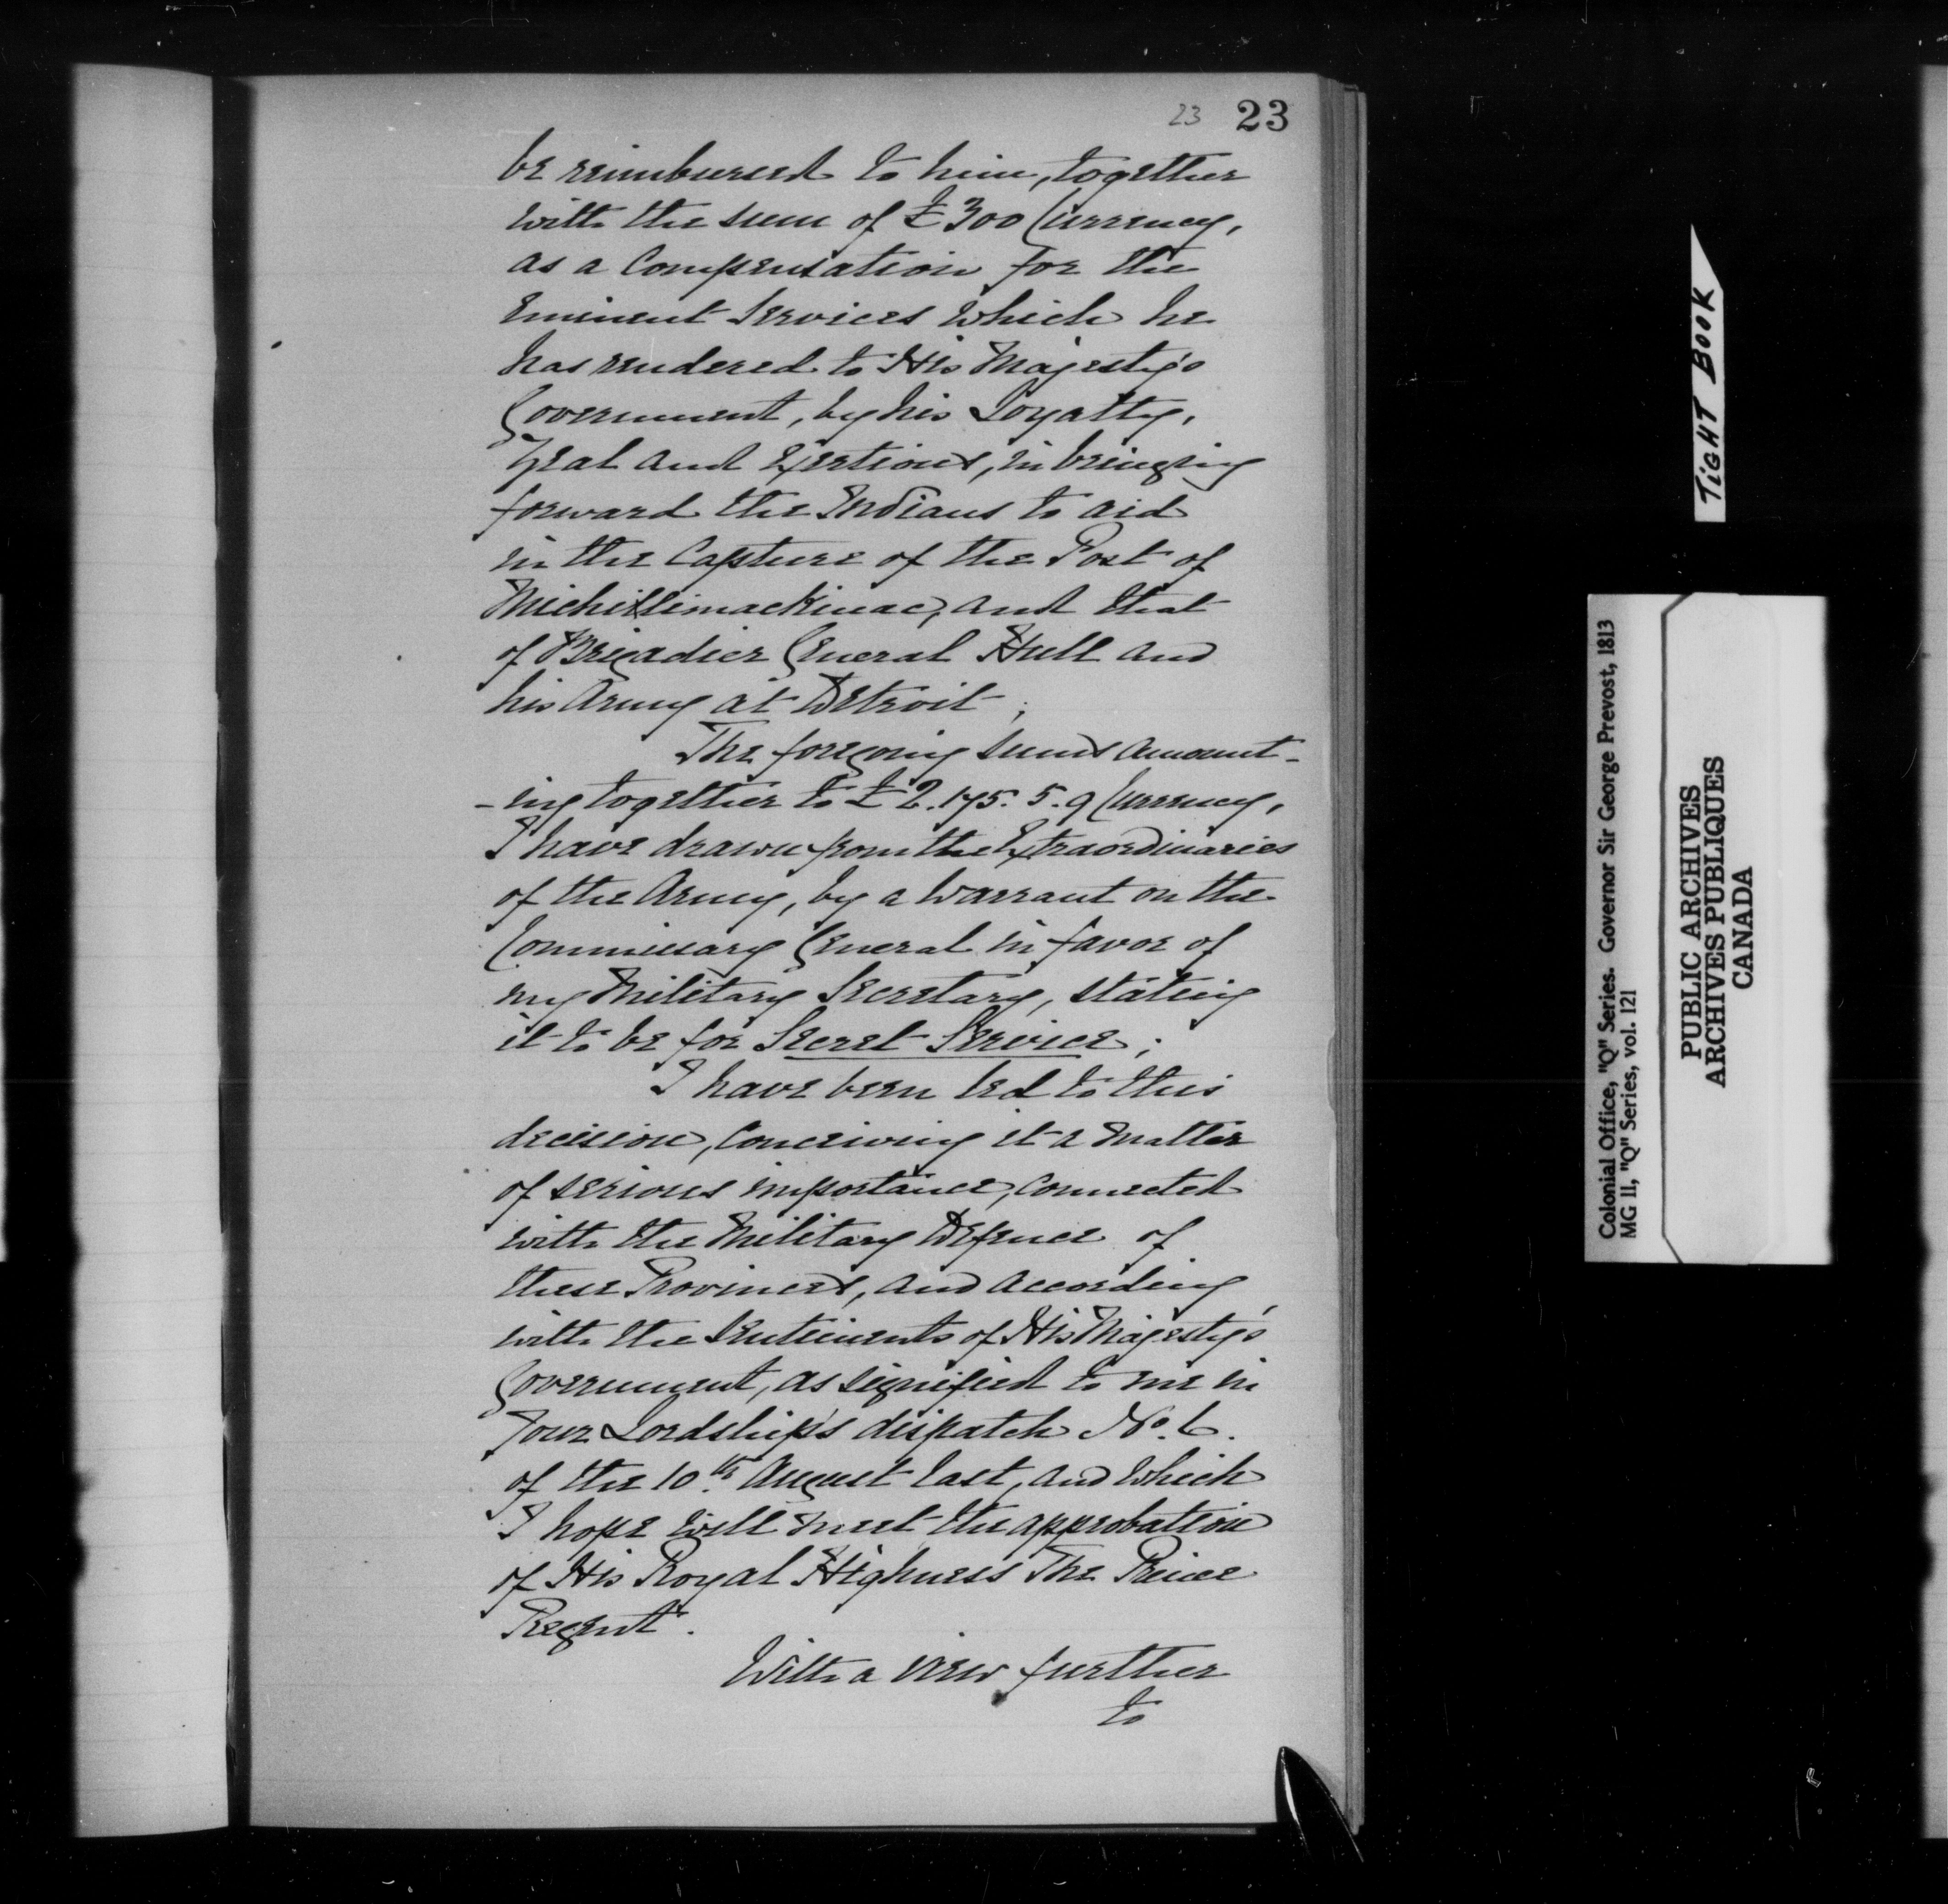 23 23
be reimbursed to him, together
with the sum of £300 Currency,
as a Compensation for the
Eminent Services which he
has rendered to His Majesty's
Government, by his Loyalty,
Zeal and Exertions, in bringing
forward the Indians to aid
in the Capture of the Post of
Michillimackinac, and that
of Brigadier General Hull and
his Army at Detroit;
The foregoing sums amount-
-ing together to £2.175.5.9 Currency,
I have drawn from the Extraordinaries
of the Army, by a Warrant on the
Commissary General in favor of
my Military Secretary, stating
it to be for Secret Service;
I have been led to this
decision, Conceiving it a matter
of serious importance, connected
with the Military Defence of
these Provinces, and according
with the Sentiments of His Majesty's
Government, as signified to me in
Your Lordship's dispatch No. 6.
of the 10th August last, and which
I hope will meet the approbation
of His Royal Highness The Prince
Regent.
With a view further
to
TIGHT BOOK
Colonial Office, "Q" Series. Governor Sir George Prevost, 1813
MG 11, "Q" Series, vol. 121
PUBLIC ARCHIVES
ARCHIVES PUBLIQUES
CANADA